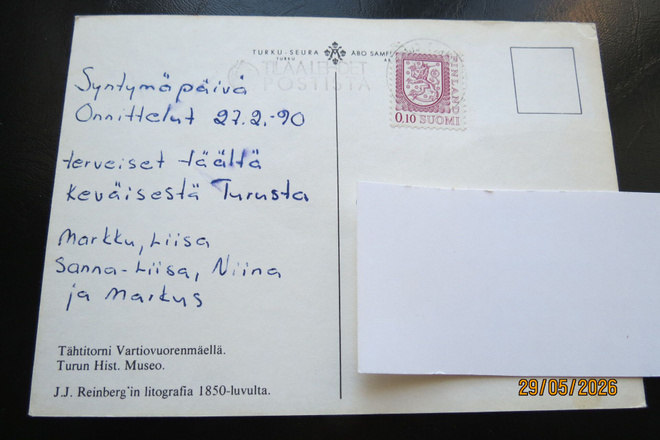 TURKU-SEURA ÅBO SAMF
TURKU
POSTISTA
FINLAND
0.10 SUOMI
Syntymäpäivä
Onnittelut 27.2.-90
terveiset täältä
keväisestä Turusta
Markku, Liisa
Sanna-Liisa, Niina
ja Markus
Tähtitorni Vartiovuorenmäellä.
Turun Hist. Museo.
J.J. Reinberg'in litografia 1850-luvulta.
29/05/2026